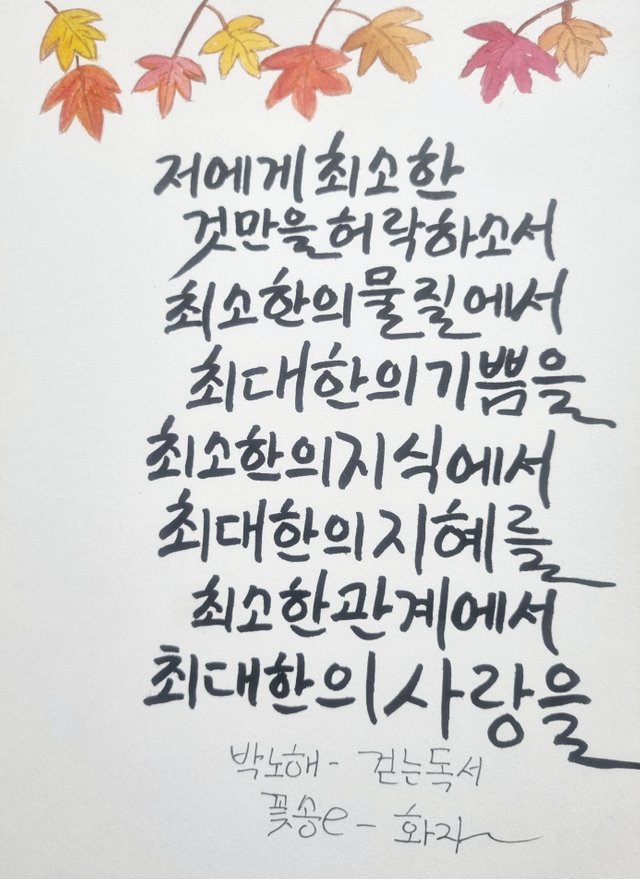 저에게 최소한
것만을 허락하소서
최소한의 물질에서
최대한의 기쁨을
최소한의 지식에서
최대한의 지혜를
최소한 관계에서
최대한의 사랑을
박노해 - 걷는독서
꽃송e - 화자